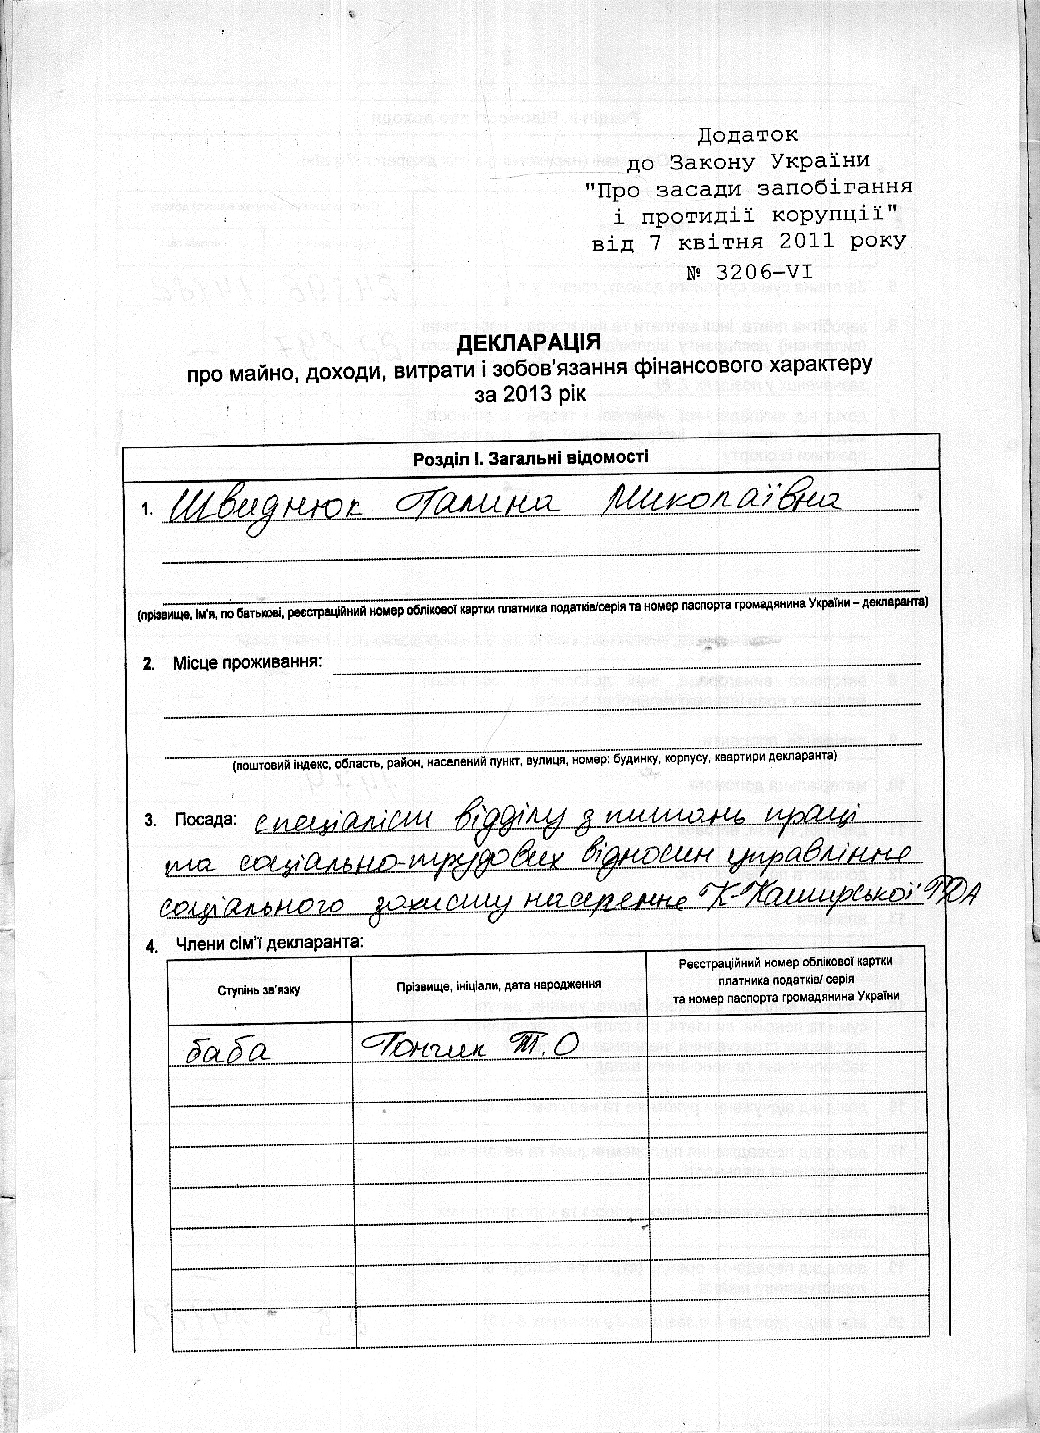 Додаток
до Закону України
"Про засади запобігання
і протидії корупції"
від 7 квітня 2011 року
№ 3206-VI
ДЕКЛАРАЦІЯ
про майно, доходи, витрати і зобов'язання фінансового характеру
за 2013 рік
Розділ І. Загальні відомості
1. Швиднюк Галина Миколаївна
(прізвище, ім'я, по батькові, реєстраційний номер облікової картки платника податків/серія та номер паспорта громадянина України – декларанта)
2. Місце проживання:
(поштовий індекс, область, район, населений пункт, вулиця, номер: будинку, корпусу, квартири декларанта)
3. Посада: спеціаліст відділу з питань праці
та соціально-трудових відносин управління
соціального захисту населення К-Каширської РДА
4. Члени сім'ї декларанта:
Ступінь зв'язку
Прізвище, ініціали, дата народження
Реєстраційний номер облікової картки
платника податків/ серія
та номер паспорта громадянина України
баба
Т.О